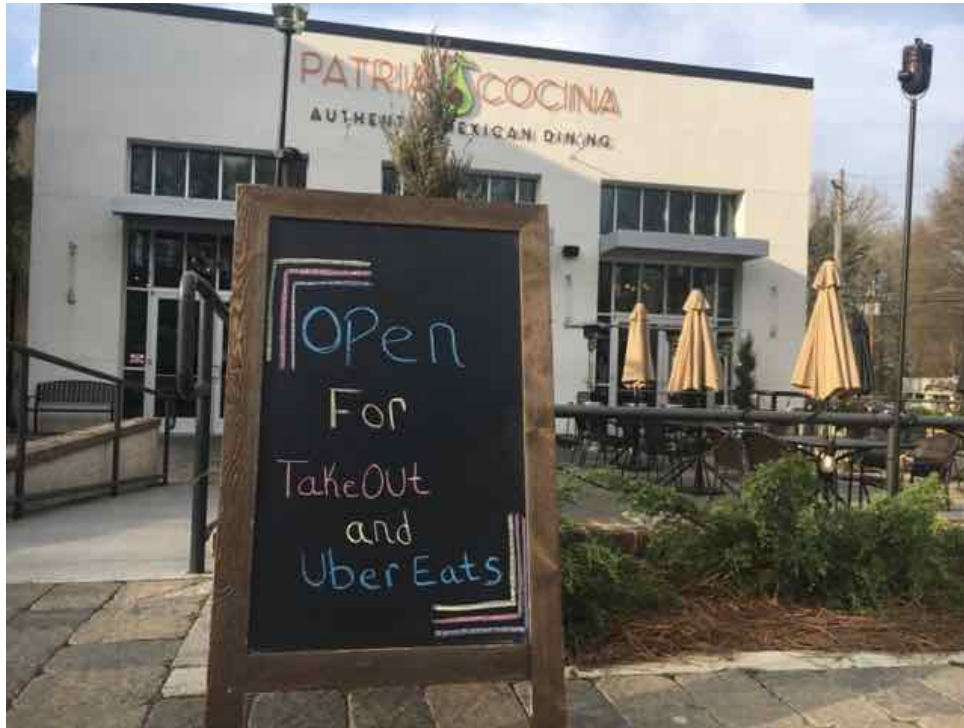 PATRIA COCINA
AUTHENTIC MEXICAN DINING
OPen
For
TakeOUt
and
Uber Eats